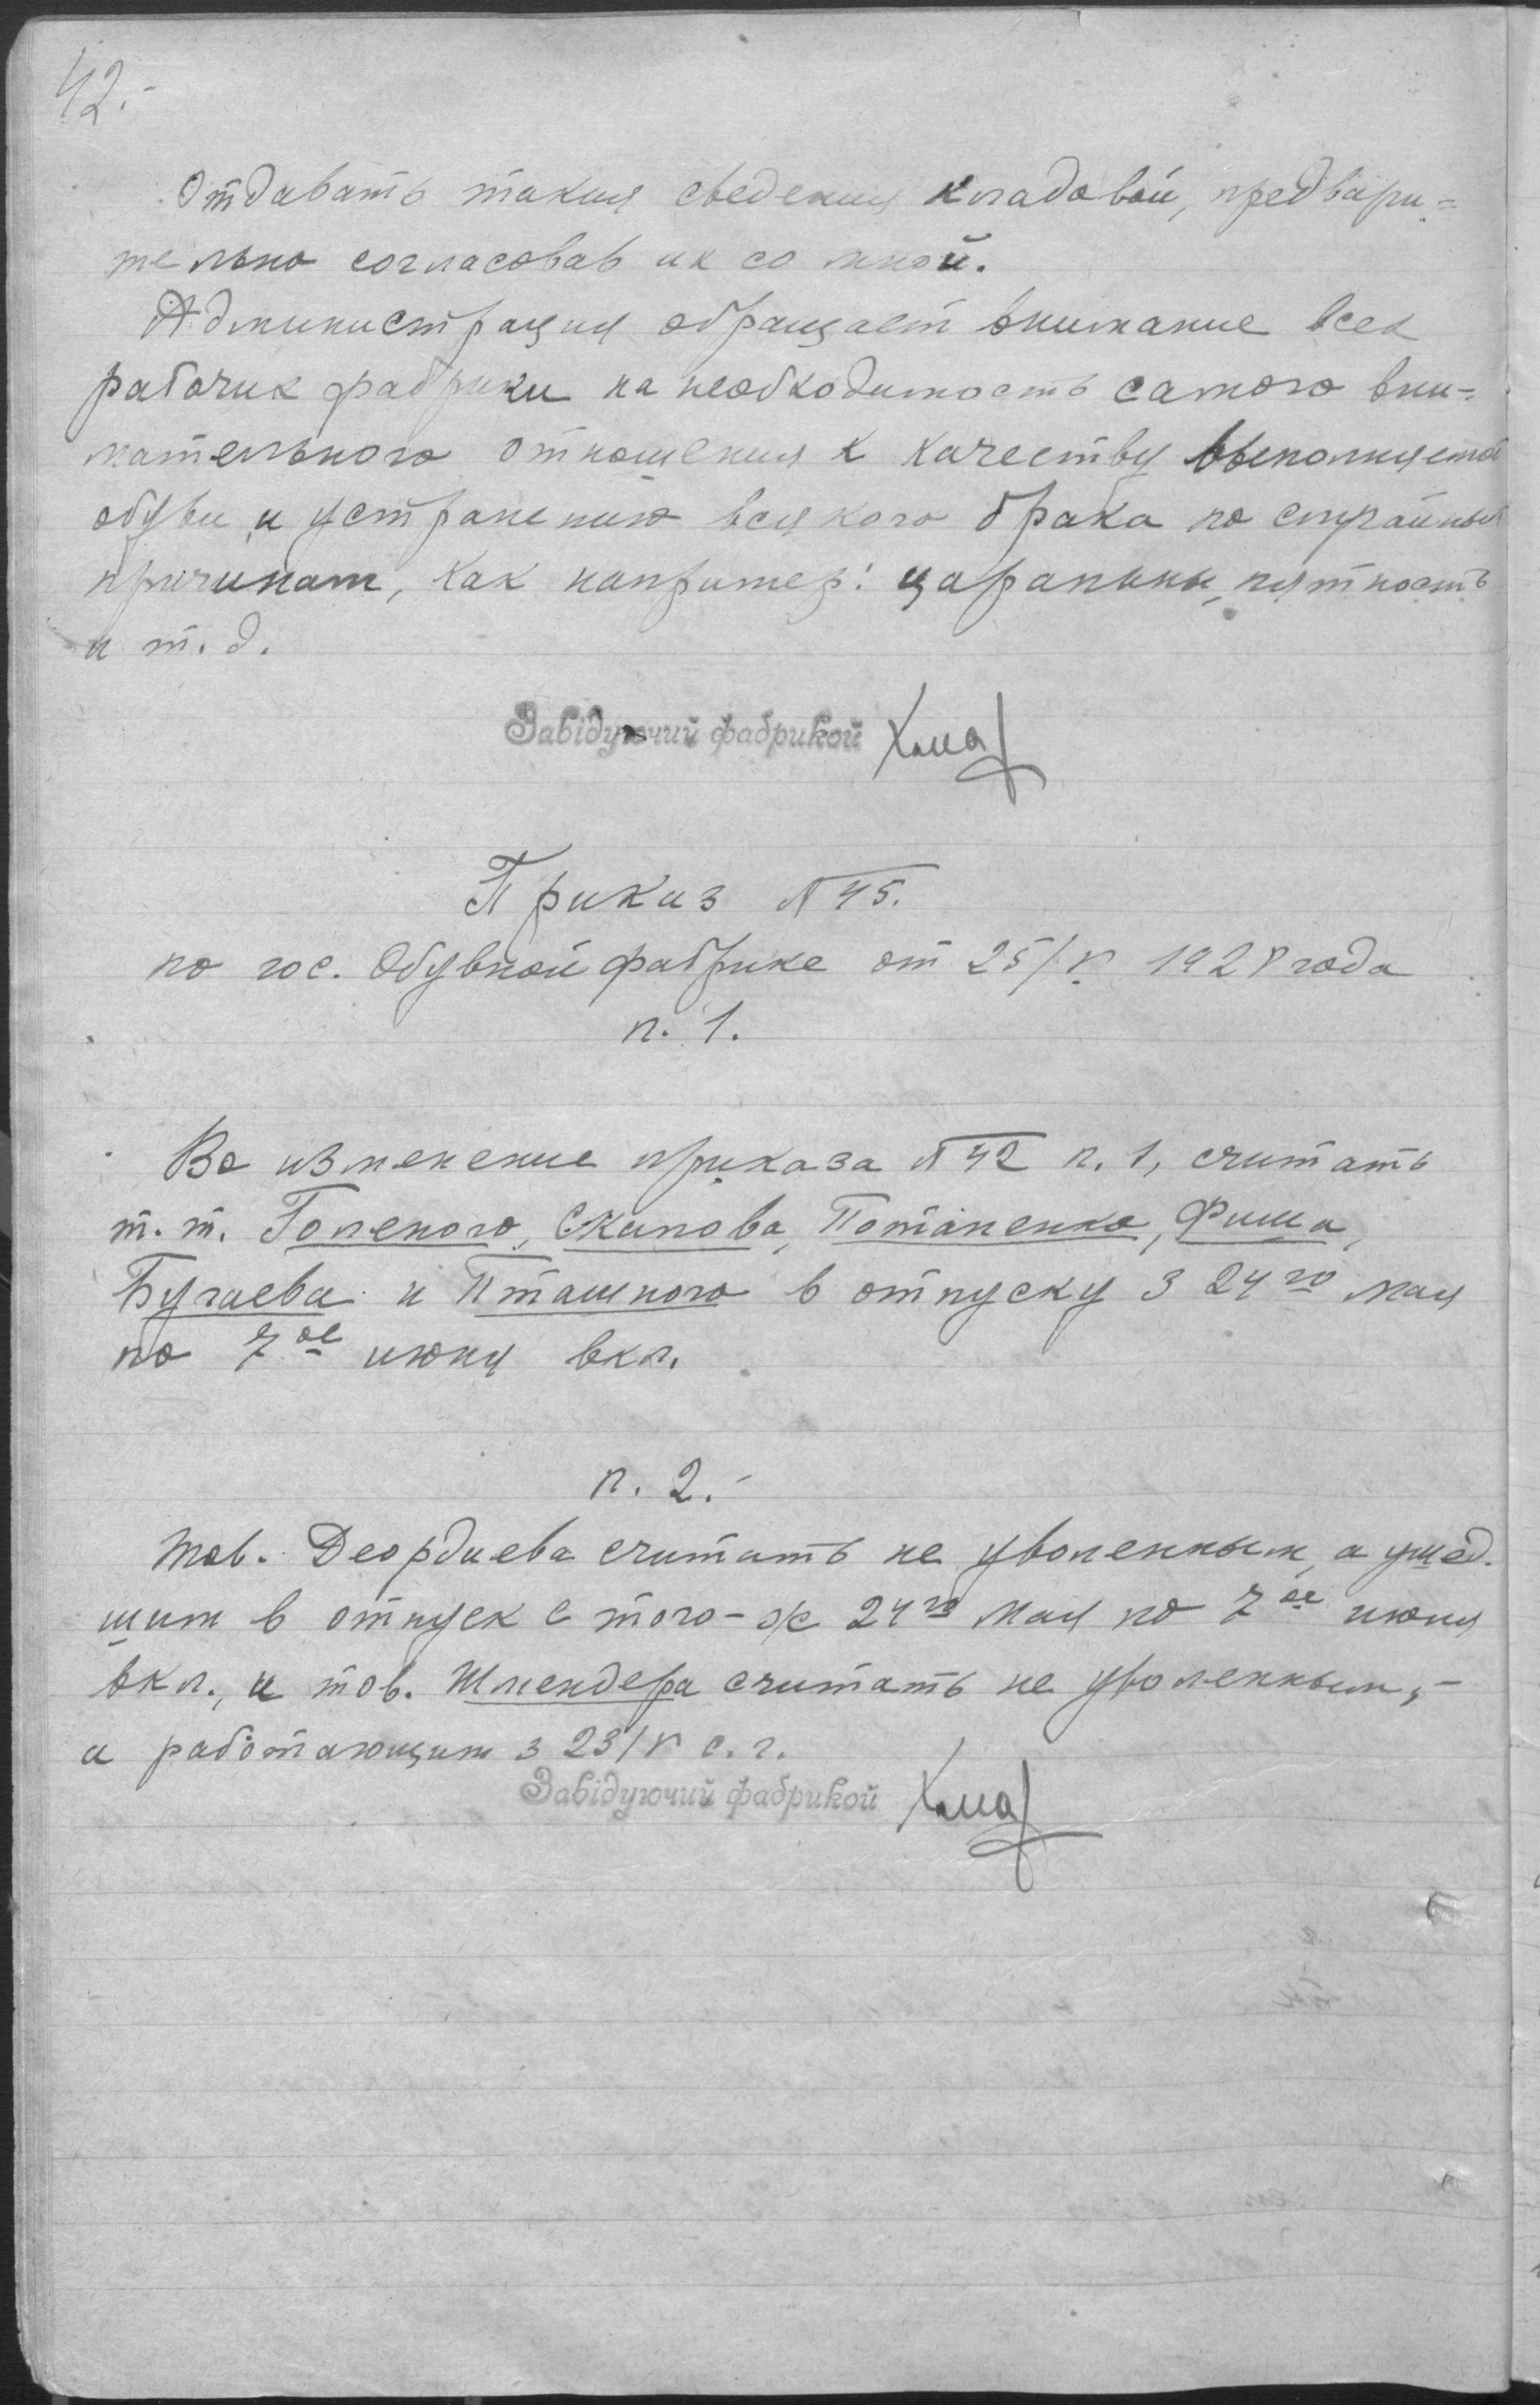 42.-
Отдавать такия сведения кладовой, предвари=
тельно согласовав их со мной.
Администрация обращает внимание всех
рабочих фабрики на необходимость самого вни=
мательного отношения к качеству выполняемой
обуви, и устранению всякого брака по случайным
причинам, как например: царапины, пятность
и т. д.
Завідуючий фабрикой
Приказ № 45.
по гос. Обувной фабрике от 25/V 1928 года
п. 1.
Во изменение приказа № 42 п. 1, считать
т. т. Голеного, Скапова, Потапенко, Фиша,
Бугаева и Пташного в отпуску з 24го мая
по 7ое июня вкл.
п. 2.-
Тов. Деордиева считать не уволенным, а ушед.
шим в отпуск с того-же 24го мая по 7ое июня
вкл., и тов. Шлендера считать не уволенным,-
а работающим з 23/V с. г.
Завідуючий фабрикой